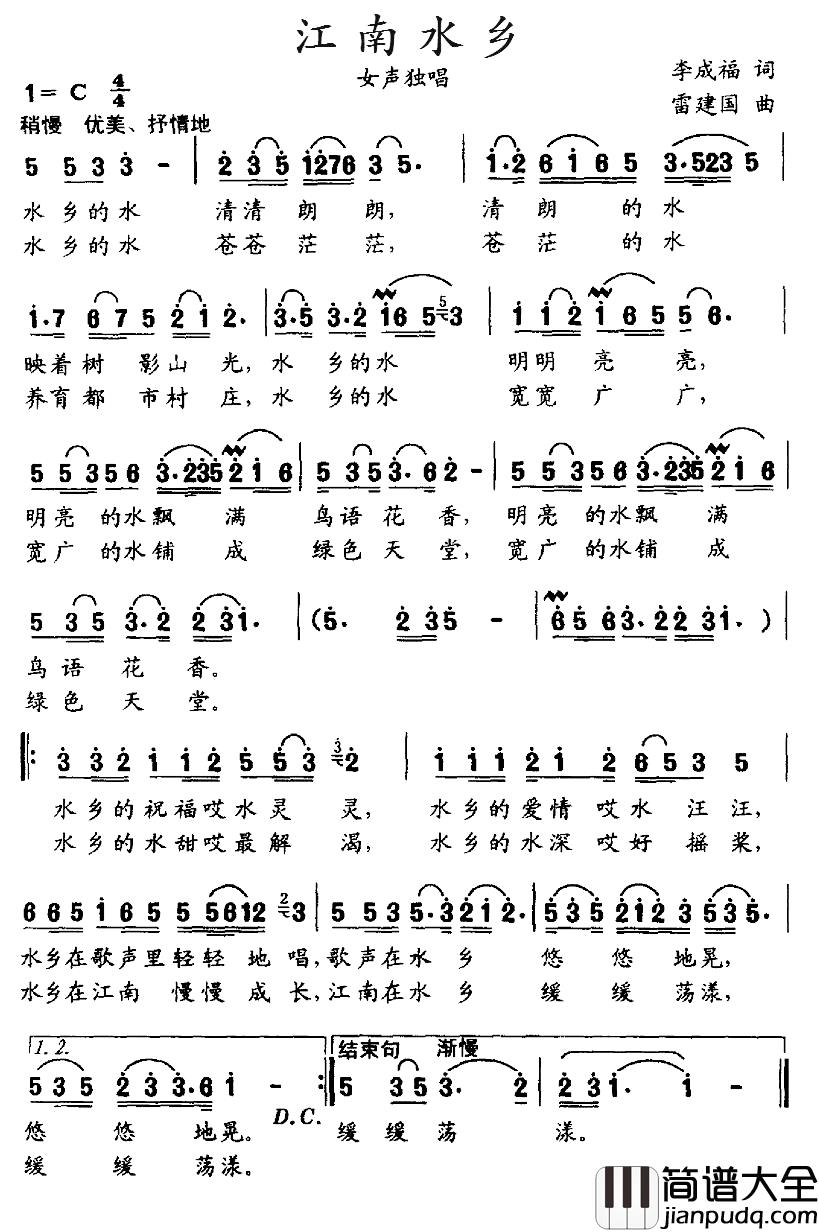 江南水乡
女声独唱
李成福 词
1=C 4/4
雷建国 曲
稍慢 优美、抒情地
5 5 3 3 - | 2 3 5 1276 3 5. | 1.2 6 1 6 5 3.523 5 |
水乡的水 清清朗朗, 清朗的水
水乡的水 苍苍茫茫, 苍茫的水
1.7 6 7 5 2 1 2. | 3.5 3.2 16 5 3 | 1 1 2 1 6 5 5 6. |
映着树影山光, 水乡的水 明明亮亮,
养育都市村庄, 水乡的水 宽宽广广,
5 5 3 5 6 3.235 2 1 6 | 5 3 5 3.6 2 - | 5 5 3 5 6 3.235 2 1 6 |
明亮的水飘满 鸟语花香, 明亮的水飘满
宽广的水铺成 绿色天堂, 宽广的水铺成
5 3 5 3.2 2 31. | (5. 2 35 - | 6 5 6 3.2 2 3 1. ) |
鸟语花香。
绿色天堂。
3 3 2 1 1 2 5 5 3 3 2 | 1 1 1 2 1 2 6 5 3 5 |
水乡的祝福哎水灵灵, 水乡的爱情哎水汪汪,
水乡的水甜哎最解渴, 水乡的水深哎好摇桨,
6 6 5 1 6 5 5 5612 2 3 | 5 5 3 5 5.3 2 1 2. | 5 3 5 2 1 2 3 5 3 5. |
水乡在歌声里轻轻地唱, 歌声在水乡 悠悠地晃,
水乡在江南慢慢成长, 江南在水乡 缓缓荡漾,
1. 2. 结束句 渐慢
5 3 5 2 3 3.6 1 - 5 3 5 3. 2 | 2 3 1. 1 -
D.C.
悠悠地晃。 缓缓荡漾。
缓缓荡漾。
简谱大全
jianpudq.com